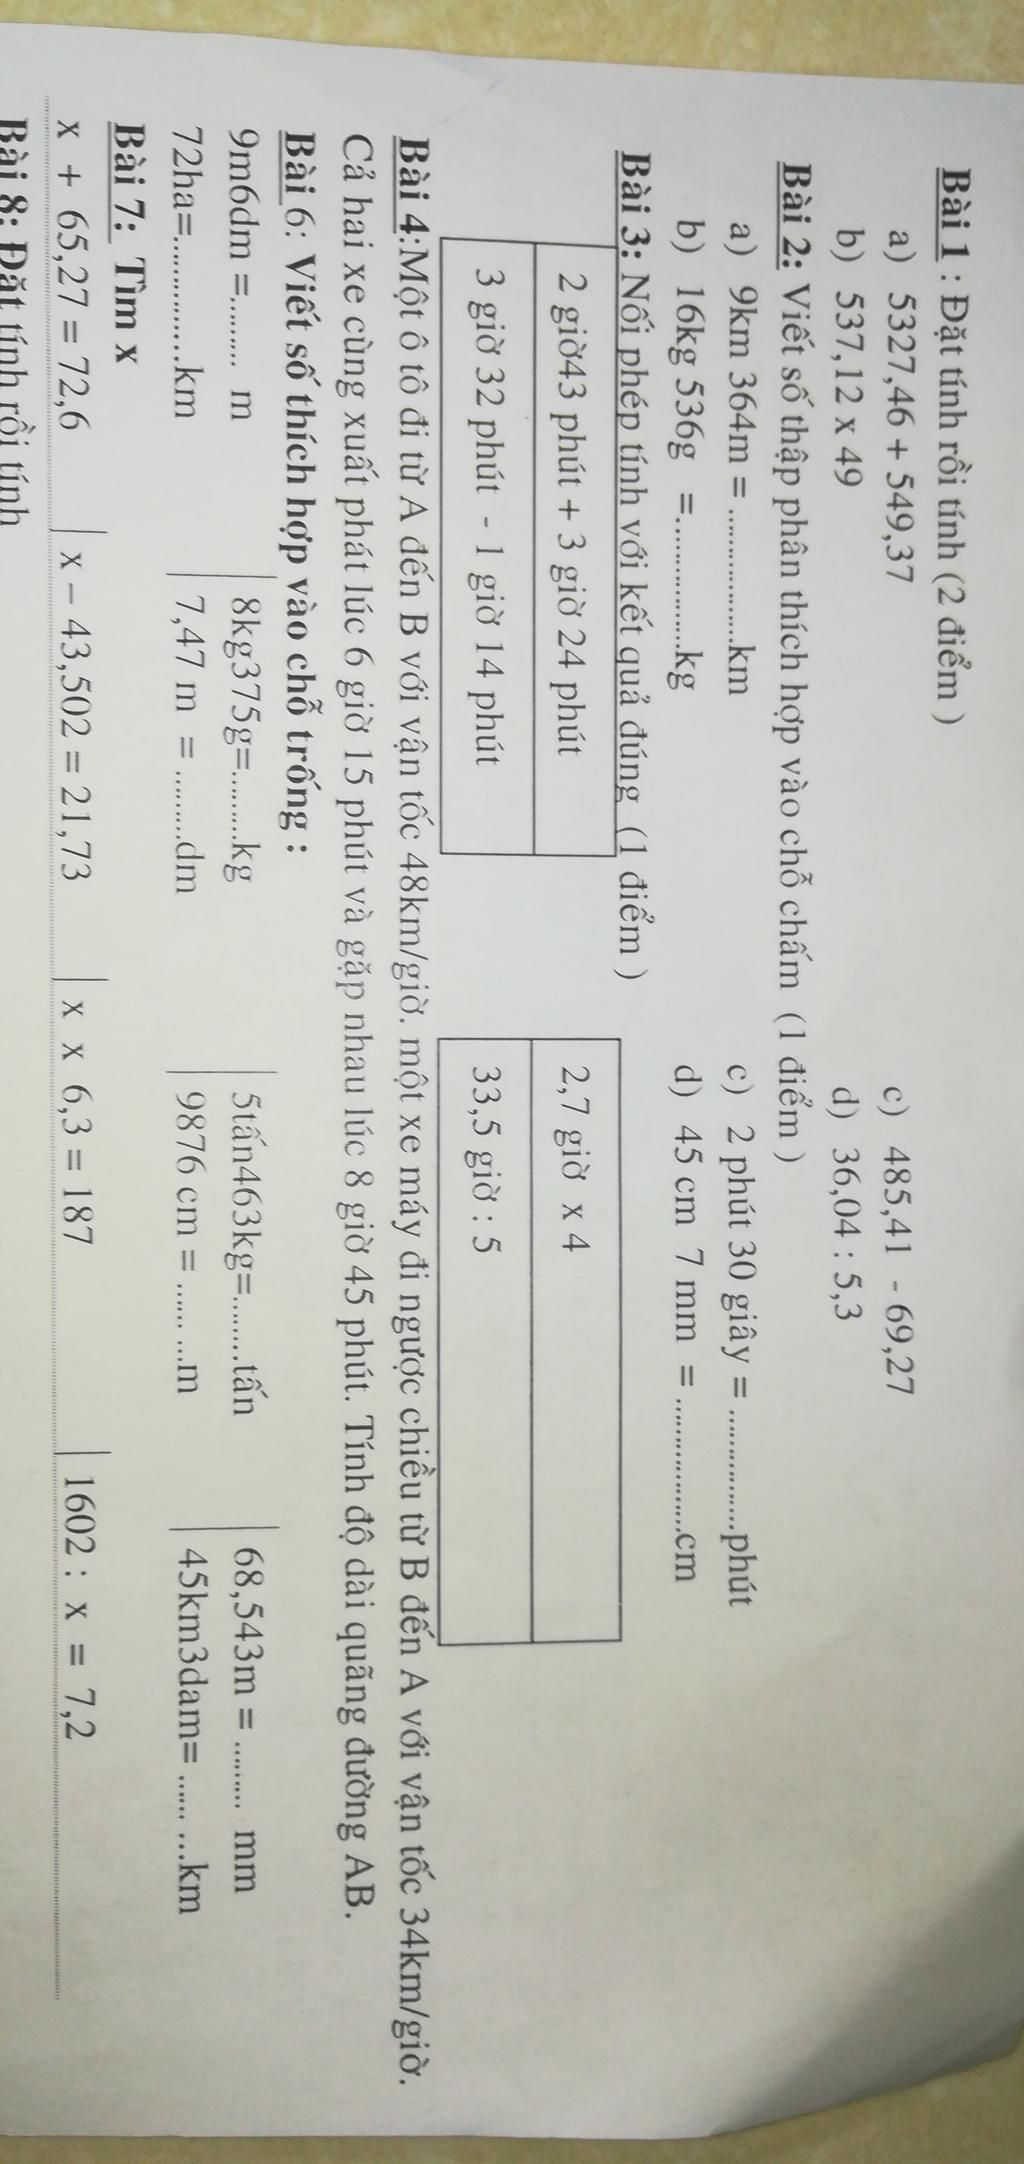 Bài 1 : Đặt tính rồi tính (2 điểm )
a) 5327,46 + 549,37 c) 485,41 - 69,27
b) 537,12 x 49 d) 36,04 : 5,3
Bài 2: Viết số thập phân thích hợp vào chỗ chấm (1 điểm )
a) 9km 364m = ................km c) 2 phút 30 giây = ................phút
b) 16kg 536g =..............kg d) 45 cm 7 mm = ................cm
Bài 3: Nối phép tính với kết quả đúng (1 điểm )
2 giờ43 phút + 3 giờ 24 phút 2,7 giờ x 4
3 giờ 32 phút - 1 giờ 14 phút 33,5 giờ : 5
Bài 4:Một ô tô đi từ A đến B với vận tốc 48km/giờ. một xe máy đi ngược chiều từ B đến A với vận tốc 34km/giờ.
Cả hai xe cùng xuất phát lúc 6 giờ 15 phút và gặp nhau lúc 8 giờ 45 phút. Tính độ dài quãng đường AB.
Bài 6: Viết số thích hợp vào chỗ trống :
9m6dm =......... m 8kg375g=.........kg 5tấn463kg=........tấn 68,543m = ......... mm
72ha=..............km 7,47 m = .........dm 9876 cm = ...... ...m 45km3dam= ...... ...km
Bài 7: Tìm x
x + 65,27 = 72,6 x – 43,502 = 21,73 x x 6,3 = 187 1602 : x = 7,2
Bài 8: Đặt tính rồi tính